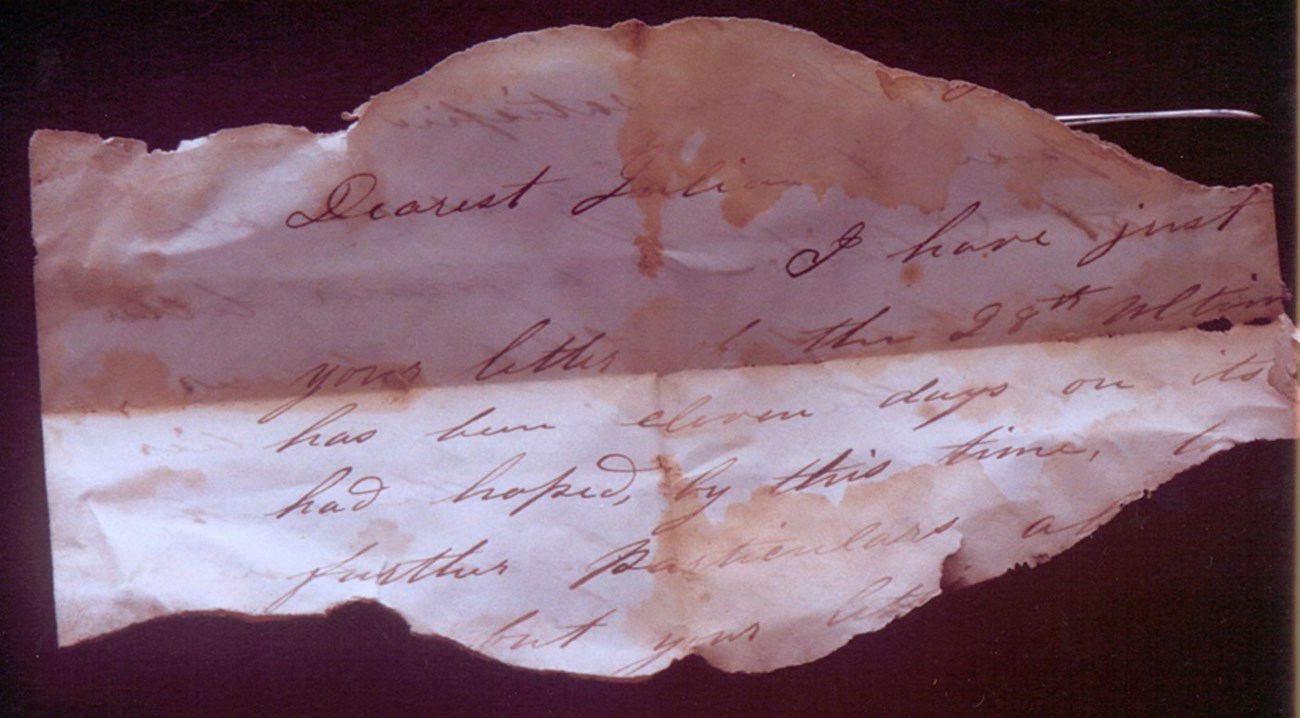 Dearest Julia
I have just
your letter of the 28th Ultim
has been eleven days on its
had hoped, by this time,
further particulars
but your